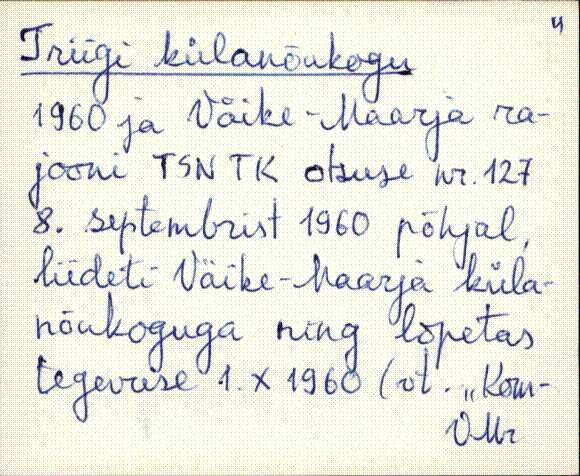 4
Triigi külanõukogu
1960 ja Väike-Maarja ra-
jooni TSN TK otsuse nr. 127
8. septembrist 1960 põhjal,
liideti Väike-Maarja küla-
nõukoguga ning lõpetas
tegevuse 1. X 1960 (vt. „Kom-
VMr